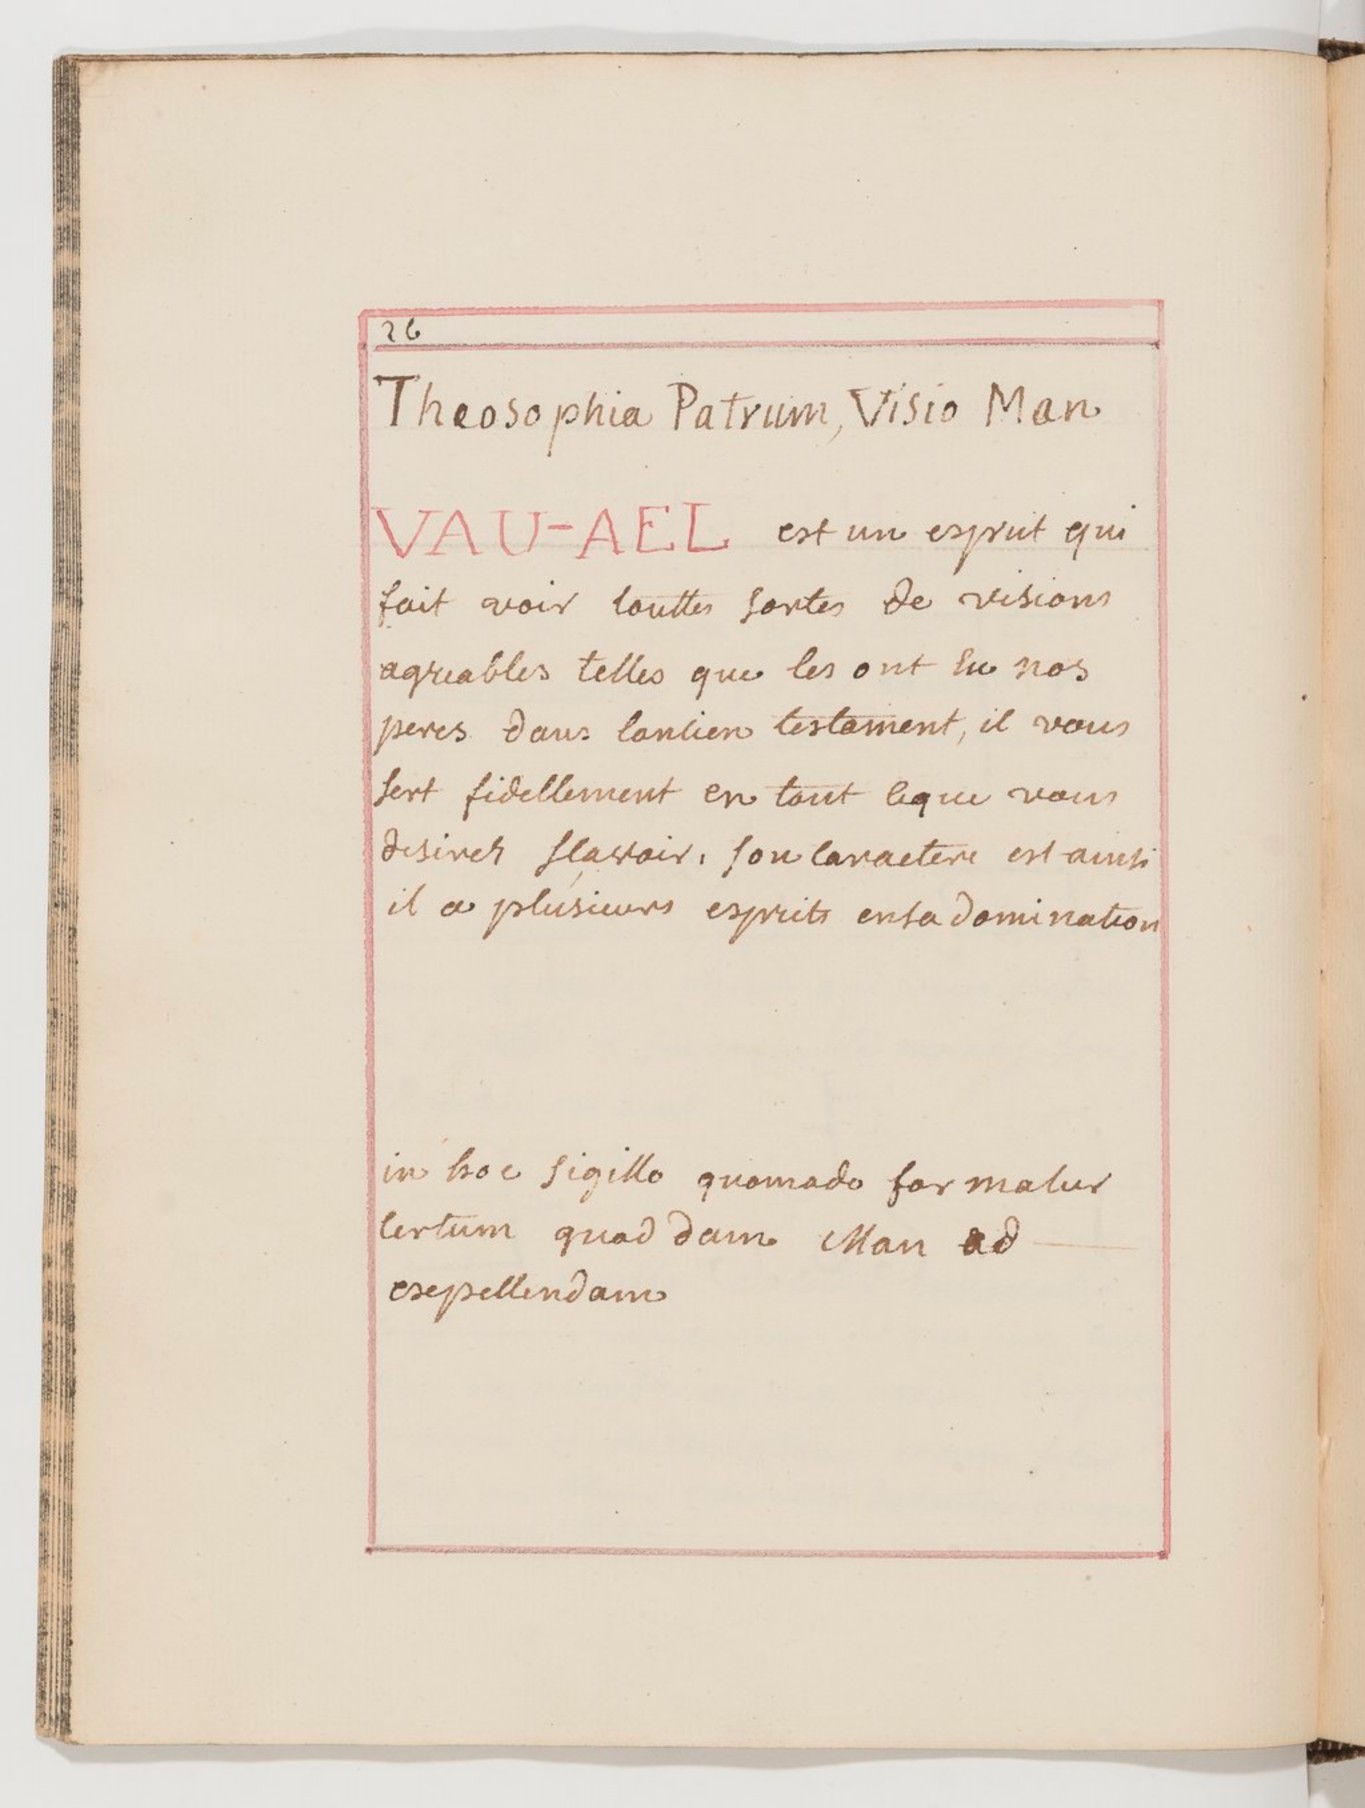 26
Theosophia Patrum, Visio Man
VAU-AEL est un esprit qui
fait voir touttes sortes de visions
agreables telles que les ont eu nos
peres dans lancien testament, il vous
sert fidellement en tout ceque vous
desirez scavoir, son caractere est ainsi
il a plusieurs esprits en sa domination
in hoc sigillo quomado formatur
certum quod dam Man ad
expellendam